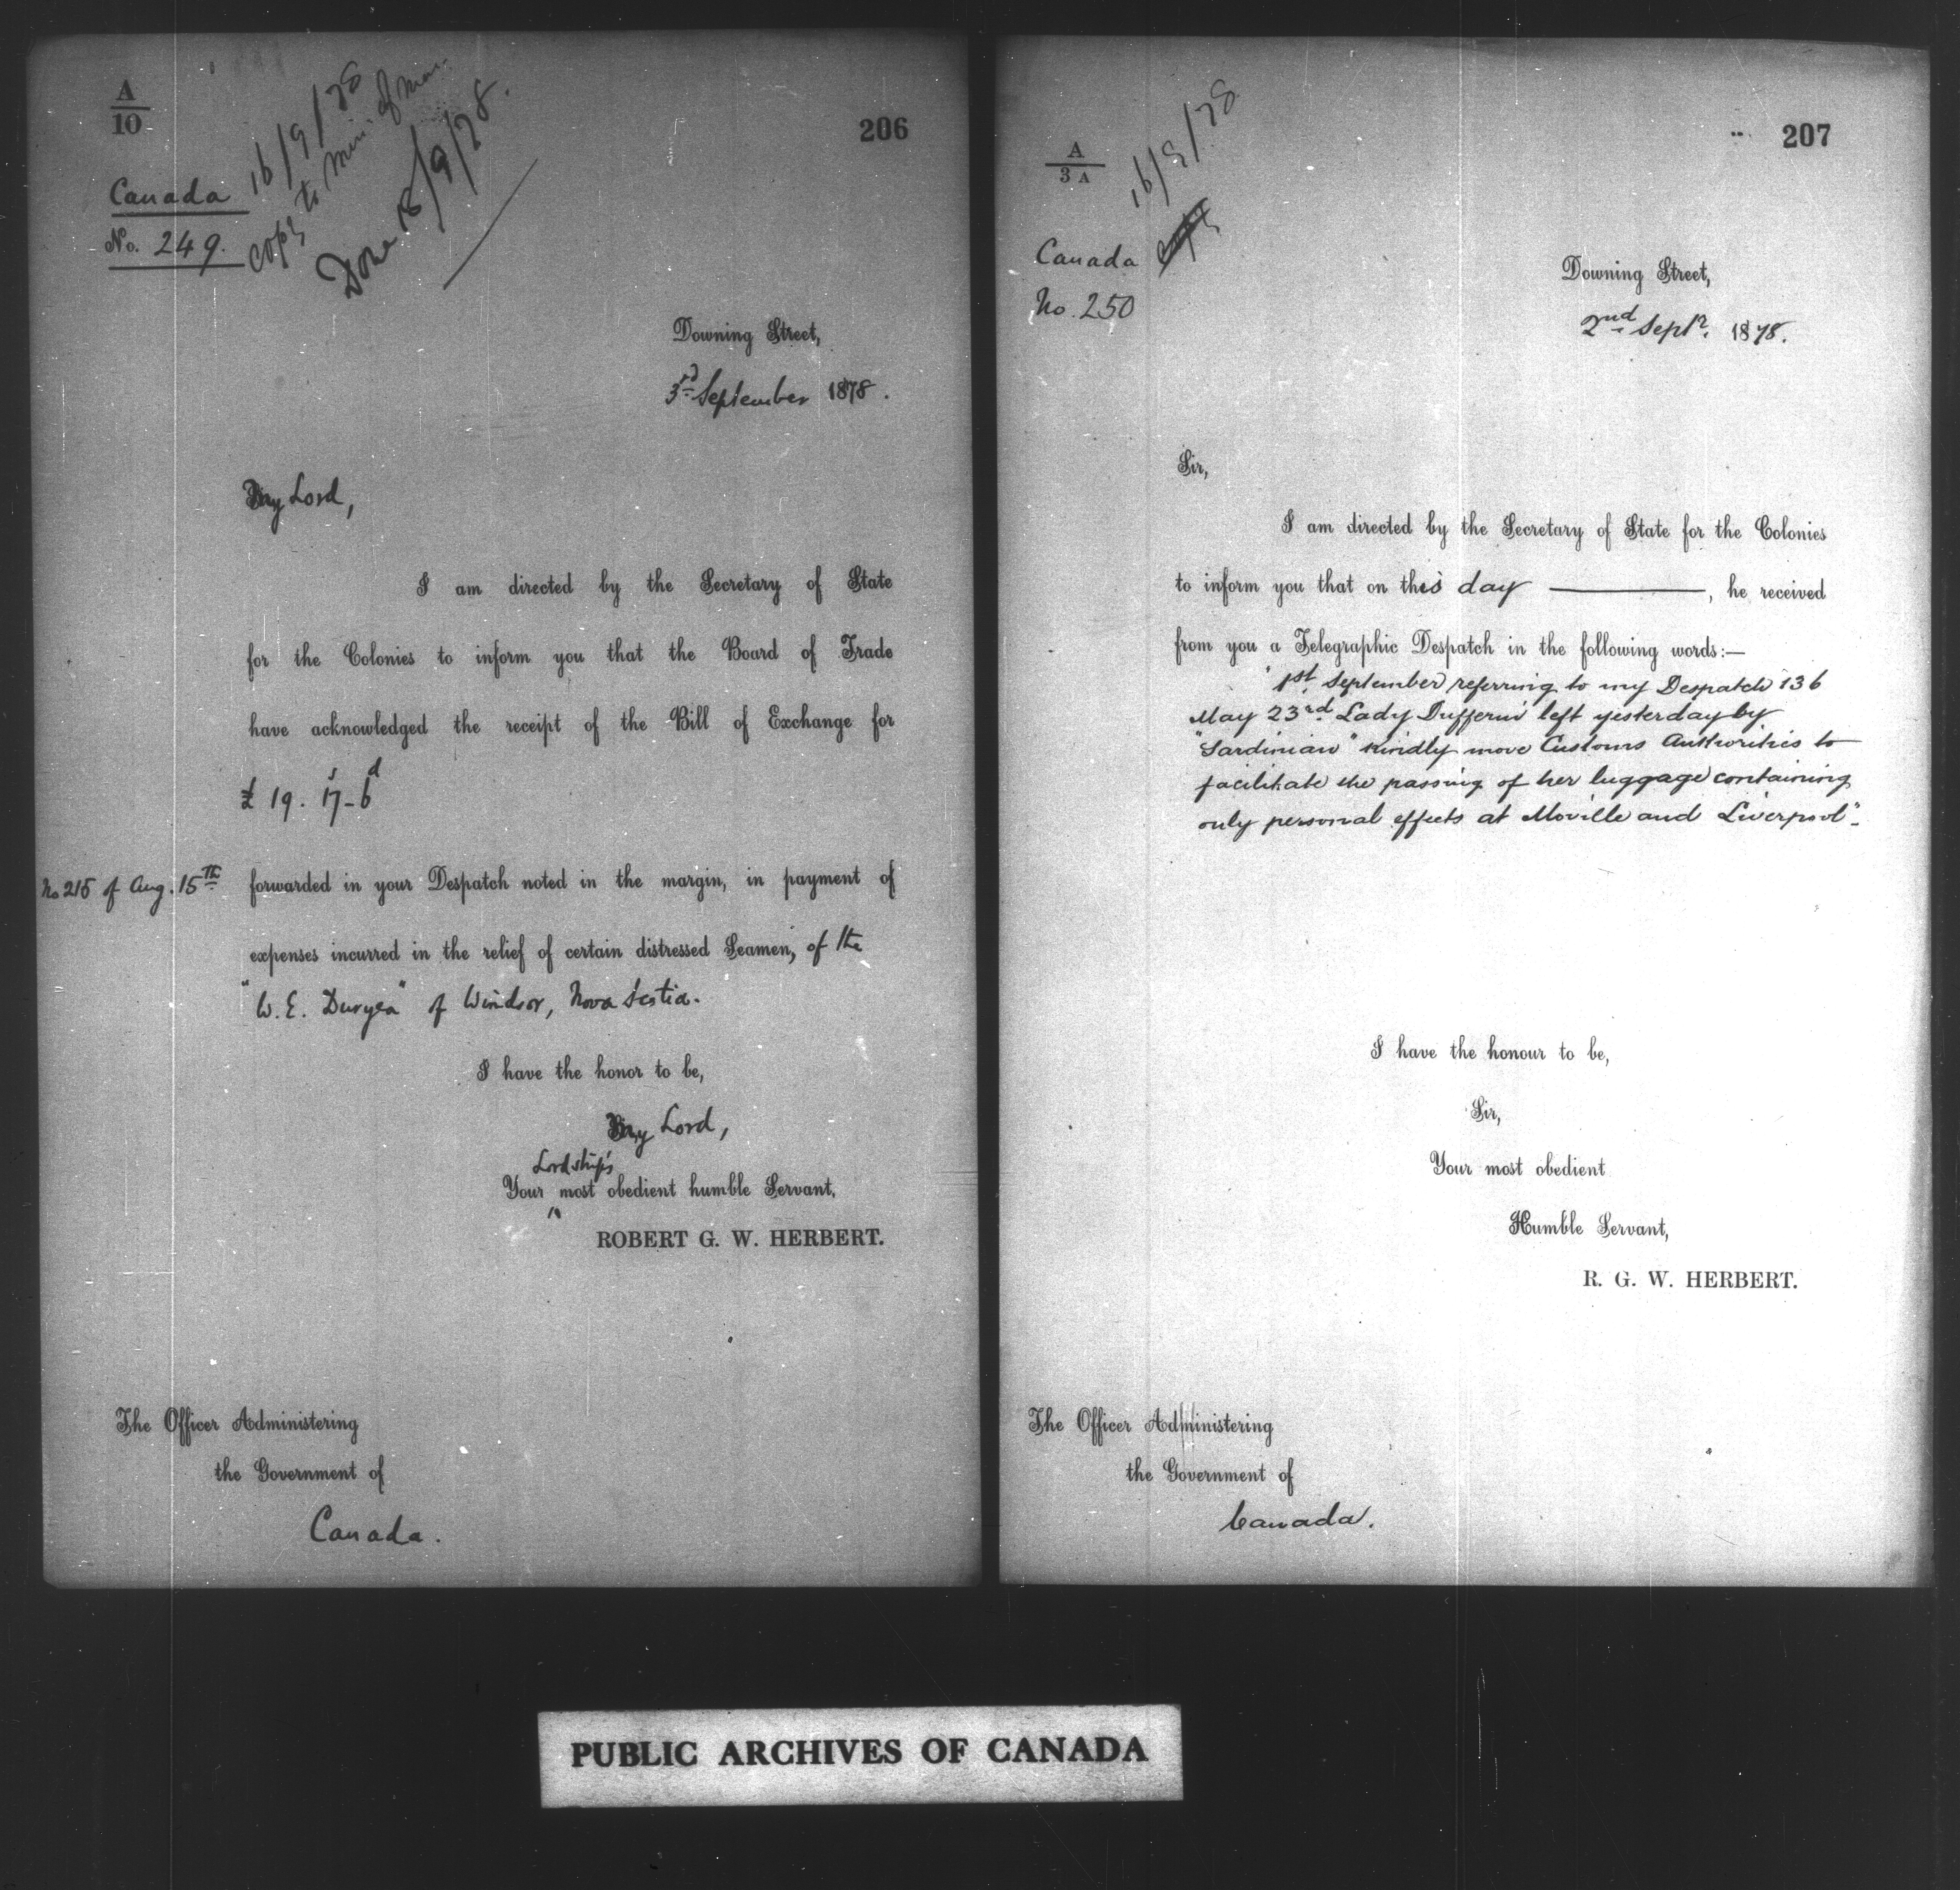 A
10
206
16/9/78
Canada
copy to Min. of Mar.
No. 249.
Done 18/9/78.
Downing Street,
3rd September 1878.
My Lord,
I am directed by the Secretary of State
for the Colonies to inform you that the Board of Trade
have acknowledged the receipt of the Bill of Exchange for
£ 19. 17s - 6d
No 215 of Aug. 15th
forwarded in your Despatch noted in the margin, in payment of
expenses incurred in the relief of certain distressed Seamen, of the
"W. E. Duryea" of Windsor, Nova Scotia.
I have the honor to be,
My Lord,
Lordship's
Your most obedient humble Servant,
ROBERT G. W. HERBERT.
The Officer Administering
the Government of
Canada.
207
A
3 A
16/9/78
Canada copy
No. 250
Downing Street,
2nd Septr. 1878.
Sir,
I am directed by the Secretary of State for the Colonies
to inform you that on this day ———, he received
from you a Telegraphic Despatch in the following words:—
"1st September referring to my Despatch 136
May 23rd Lady Dufferin left yesterday by
"Sardinian" kindly move Customs Authorities to
facilitate the passing of her luggage containing
only personal effects at Moville and Liverpool".
I have the honour to be,
Sir,
Your most obedient
Humble Servant,
R. G. W. HERBERT.
The Officer Administering
the Government of
Canada.
PUBLIC ARCHIVES OF CANADA